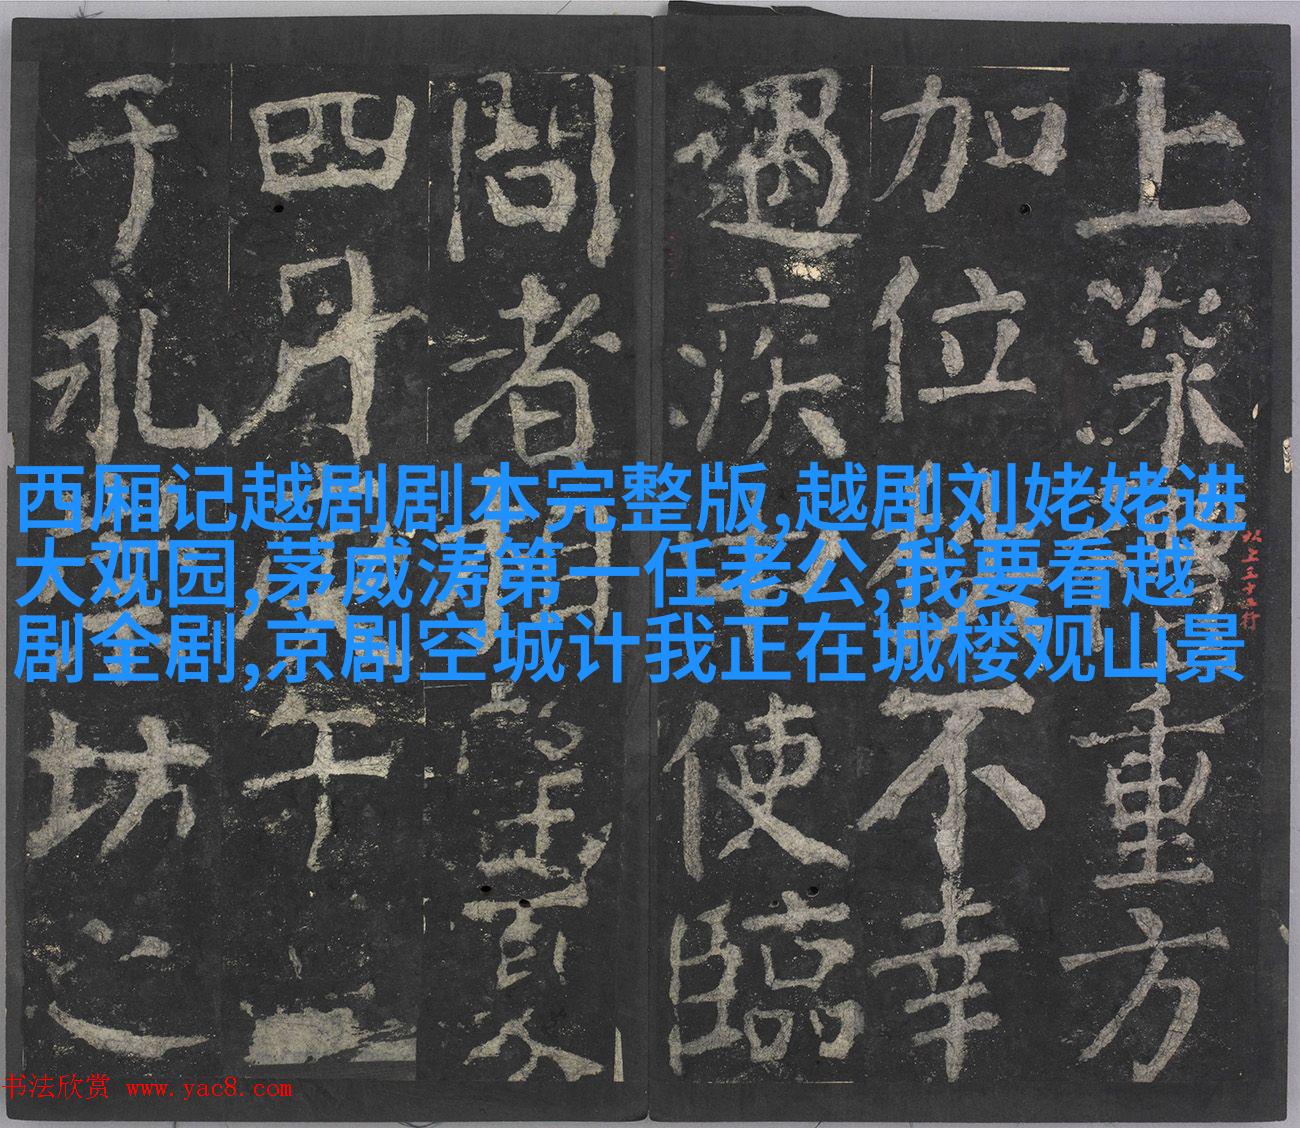 上深重方
加位不幸
遇疾使臨
問者相望夏
四月庚午
于永寧坊之
以上五十行
西厢记越剧剧本完整版,越剧刘姥姥进
大观园,茅威涛第一任老公,我要看越
剧全剧,京剧空城计我正在城楼观山景
书法欣赏 www.yac8.com